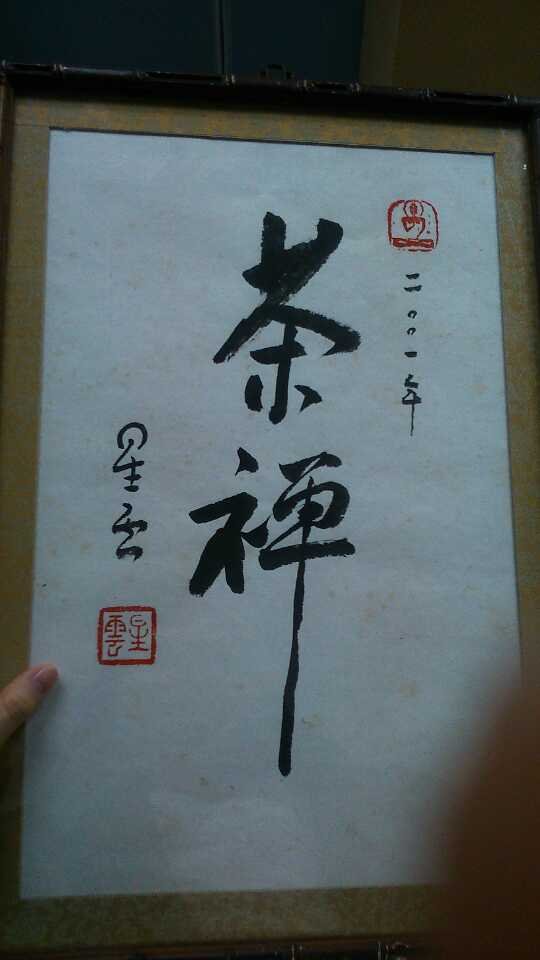 二〇〇一年
茶禅
星云
星雲